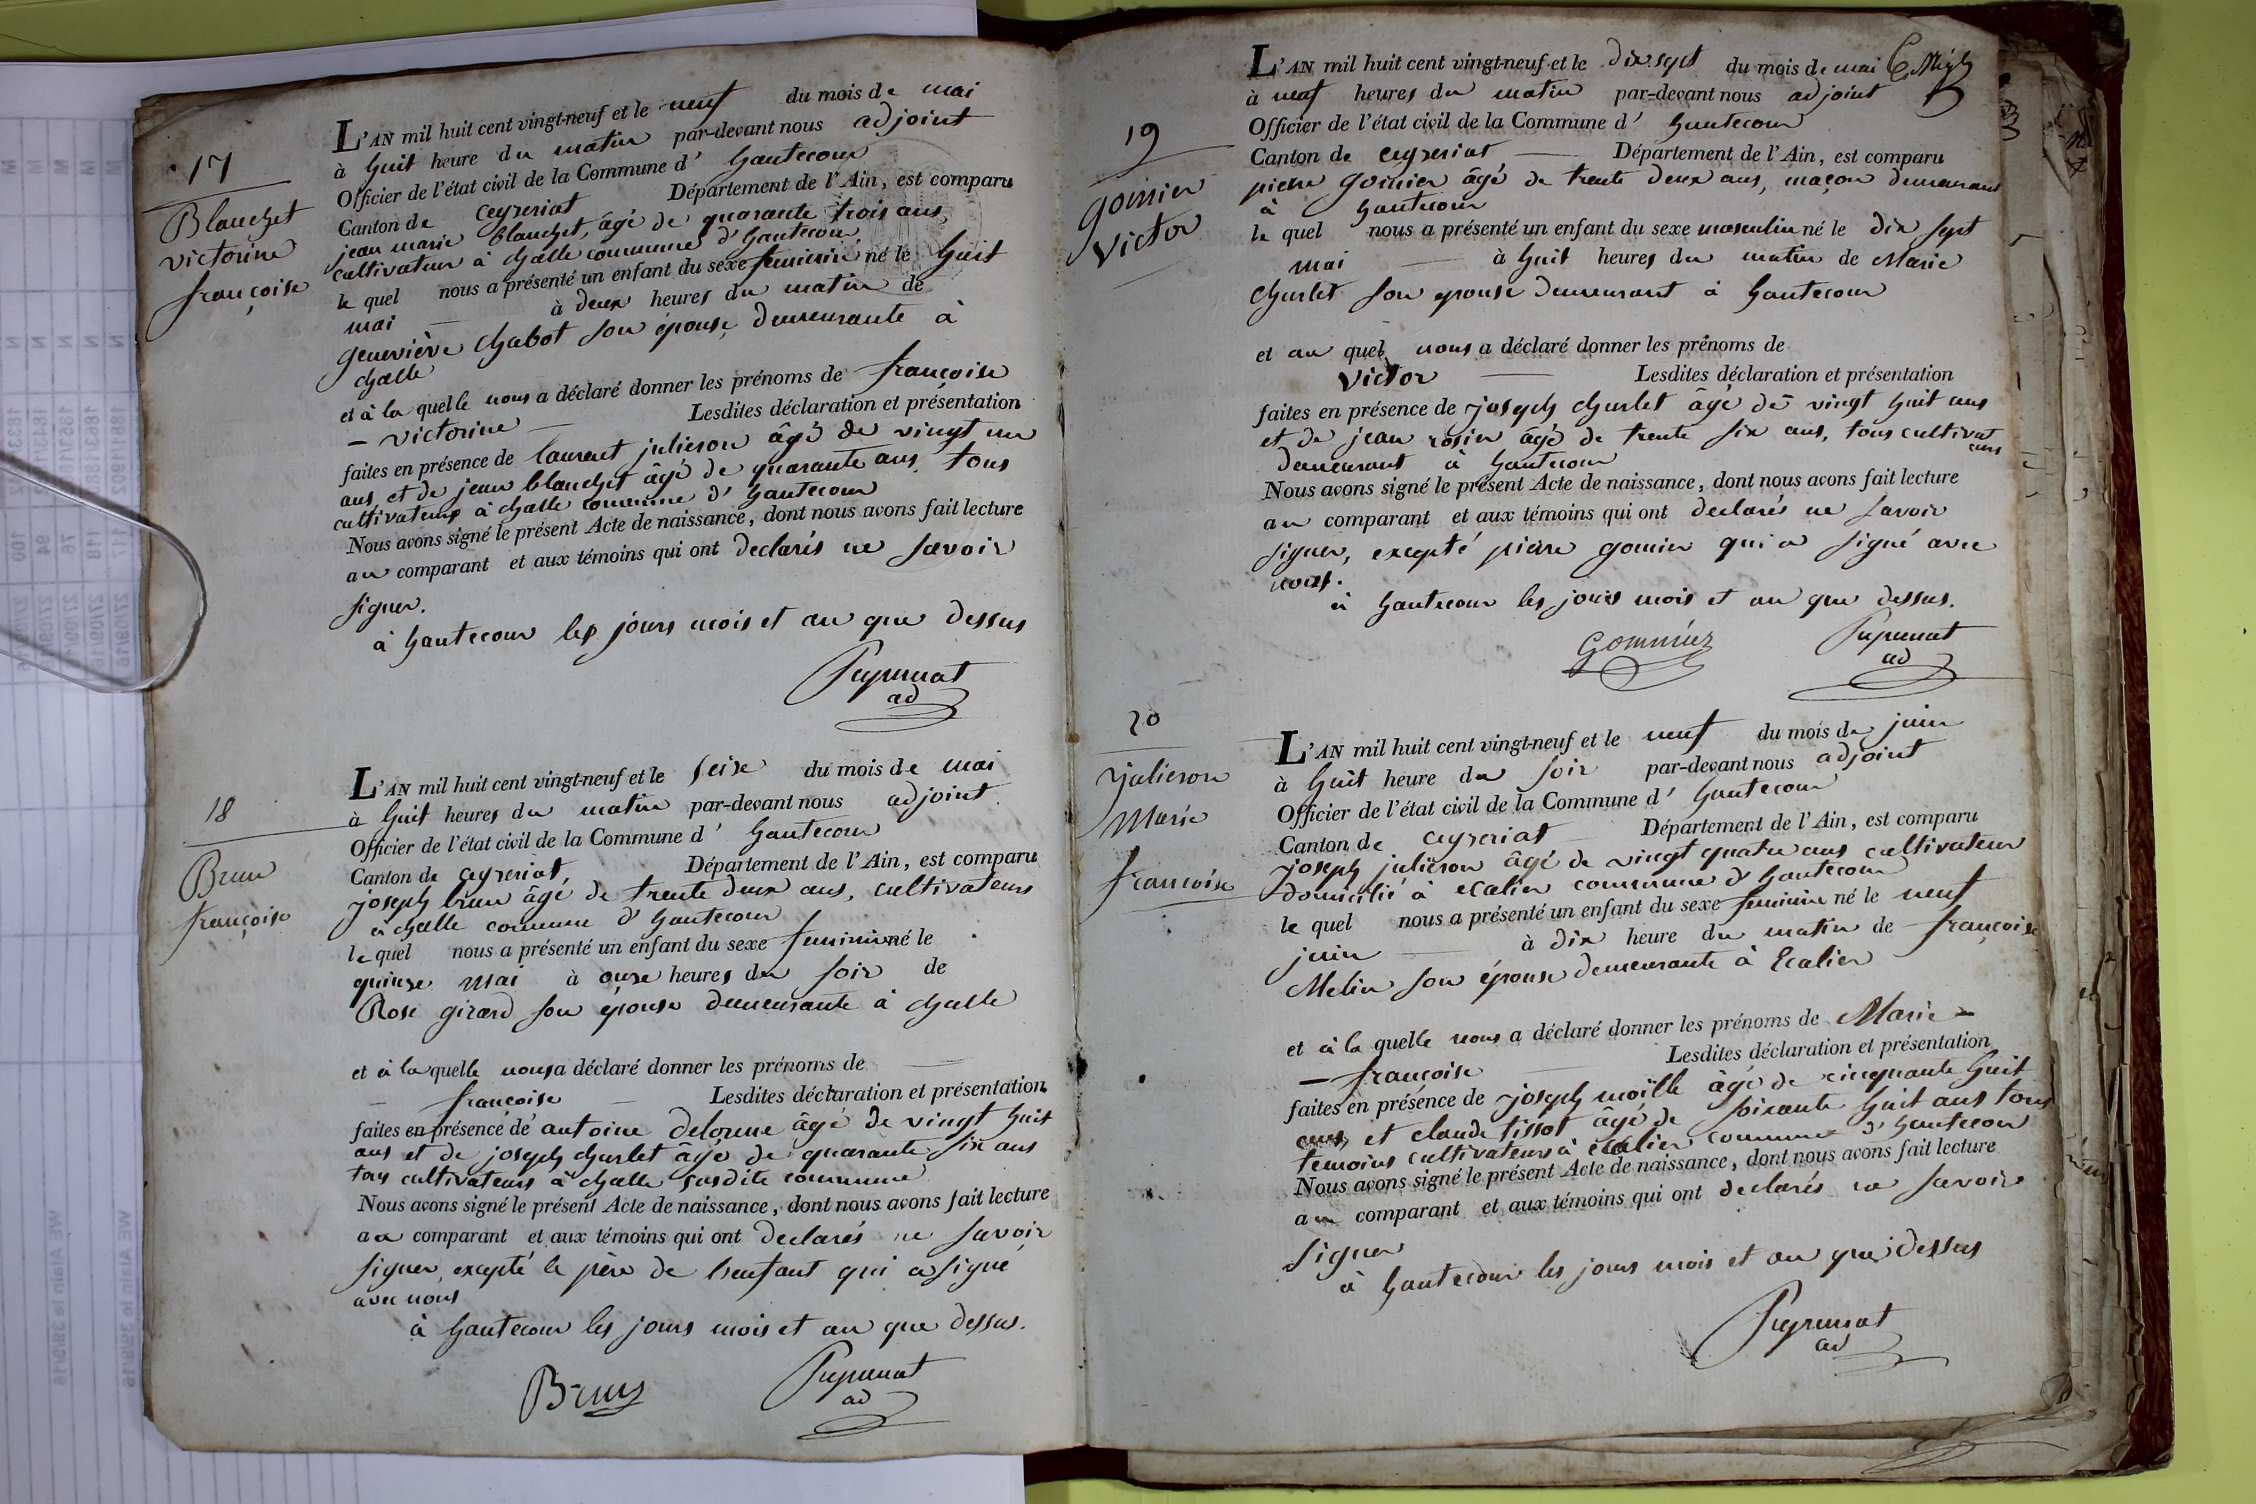 17
Blanchet
victorine
françoise
L'AN mil huit cent vingt-neuf et le neuf du mois de mai
à huit heure du matin par-devant nous adjoint
Officier de l'état civil de la Commune d' hautecour
Canton de ceyzeriat Département de l'Ain, est comparu
jean marie blanchet, âgé de quarante trois ans,
cultivateur à challe commune d'hautecour
le quel nous a présenté un enfant du sexe feminin né le huit
mai à deux heures du matin de
geneviève chabot son épouse, demeurante à
challe
et à la quelle nous a déclaré donner les prénoms de françoise
- victorine - Lesdites déclaration et présentation
faites en présence de laurent julieron âgé de vingt un
ans, et de jean blanchet âgé de quarante ans, tous
cultivateurs à challe commune d'hautecour
Nous avons signé le présent Acte de naissance, dont nous avons fait lecture
au comparant et aux témoins qui ont declarés ne savoir
signer.
à hautecour les jours mois et an que dessus
ad
18
Brun
françoise
L'AN mil huit cent vingt-neuf et le seize du mois de mai
à huit heures du matin par-devant nous adjoint
Officier de l'état civil de la Commune d' hautecour
Canton de ceyzeriat, Département de l'Ain, est comparu
joseph brun âgé de trente deux ans, cultivateurs
à challe commune d'hautecour
le quel nous a présenté un enfant du sexe feminin né le
quinze mai à onze heures du soir de
Rose girard son épouse demeurante à challe
et à la quelle nous a déclaré donner les prénoms de
- françoise - Lesdites déclaration et présentation
faites en présence de antoine delorme âgé de vingt huit
ans et de joseph churlet âgé de quarante six ans
tous cultivateurs à challe susdite commune
Nous avons signé le présent Acte de naissance, dont nous avons fait lecture
au comparant et aux témoins qui ont declarés ne savoir
signer, excepté le père de l'enfant qui a signé
avec nous
à hautecour les jours mois et an que dessus.
Brun
ad
19
gomier
victor
L'AN mil huit cent vingt-neuf et le dix sept du mois de mai
à neuf heures du matin par-devant nous adjoint
Officier de l'état civil de la Commune d' hautecour
Canton de ceyzeriat Département de l'Ain, est comparu
pierre gomier âgé de trente deux ans, maçon demeurant
à hautecour
le quel nous a présenté un enfant du sexe masculin né le dix sept
mai à huit heures du matin de Marie
churlet son epouse demeurant à hautecour
et au quel nous a déclaré donner les prénoms de
victor Lesdites déclaration et présentation
faites en présence de joseph churlet âgé de vingt huit ans
et de jean rosier âgé de trente six ans, tous cultivateurs
demeurant à hautecour
Nous avons signé le présent Acte de naissance, dont nous avons fait lecture
au comparant et aux témoins qui ont declarés ne savoir
signer, excepté pierre gomier qui a signé avec
nous.
à hautecour les jours mois et an que dessus.
Gommier
ad
20
julieron
Marie
françoise
L'AN mil huit cent vingt-neuf et le neuf du mois de juin
à huit heure du soir par-devant nous adjoint
Officier de l'état civil de la Commune d' hautecour
Canton de ceyzeriat Département de l'Ain, est comparu
joseph julieron âgé de vingt quatre ans cultivateur
domicilié à ecalier commune d'hautecour
le quel nous a présenté un enfant du sexe feminin né le neuf
juin à dix heure du matin de françoise
Melin son épouse demeurante à Ecalier
et à la quelle nous a déclaré donner les prénoms de Marie -
- françoise Lesdites déclaration et présentation
faites en présence de joseph moille âgé de cinquante huit
ans, et claude tissot âgé de soixante huit ans tous
temoins cultivateurs à ecalier commune d'hautecour
Nous avons signé le présent Acte de naissance, dont nous avons fait lecture
au comparant et aux témoins qui ont declarés ne savoir
signer
à hautecour les jours mois et an que dessus
ad